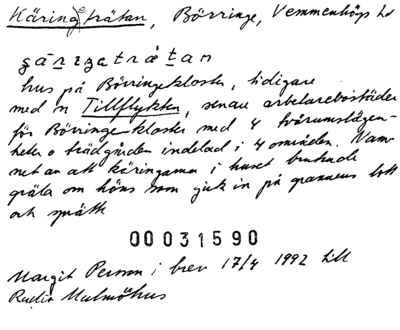 Käringeträtan, Börringe, Vemmenhögs hd
hus på Börringekloster, tidigare
med n Tillflykten, senare arbetarebostäder
för Börringekloster med 4 tvårumslägen-
heter o trädgården indelad i 4 områden. Nam-
net av att käringarna i huset brukade
gräla om höns som gick in på grannens lott
och sprätte
00031590
Margit Persson i brev 17/4 1992 till
Radio Malmöhus